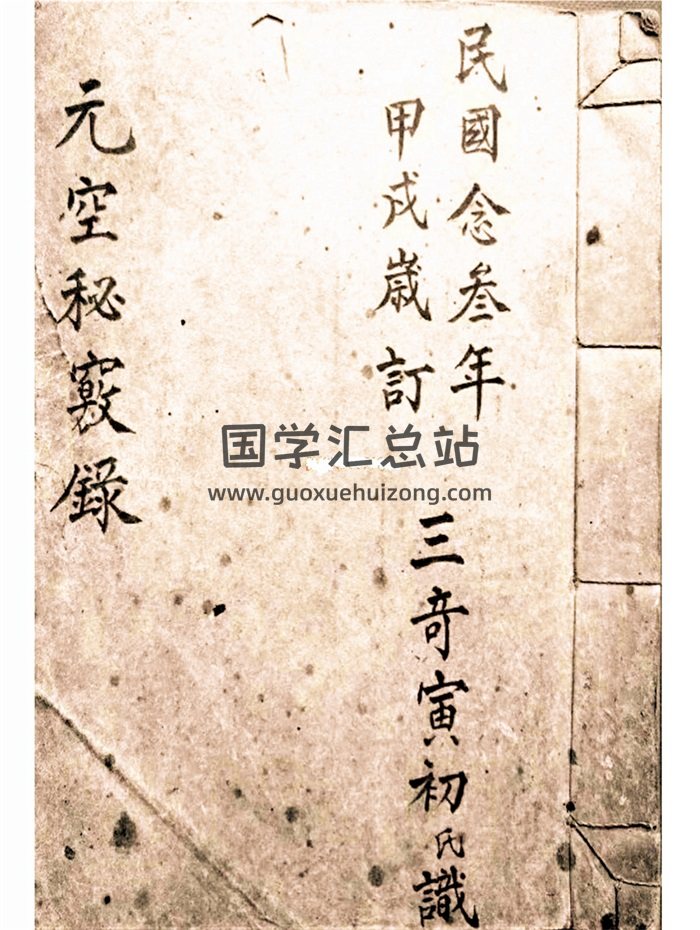 民國念叁年
甲戍歲訂
三奇寅初氏識
元空秘竅錄
国学汇总站
www.guoxuehuizong.com